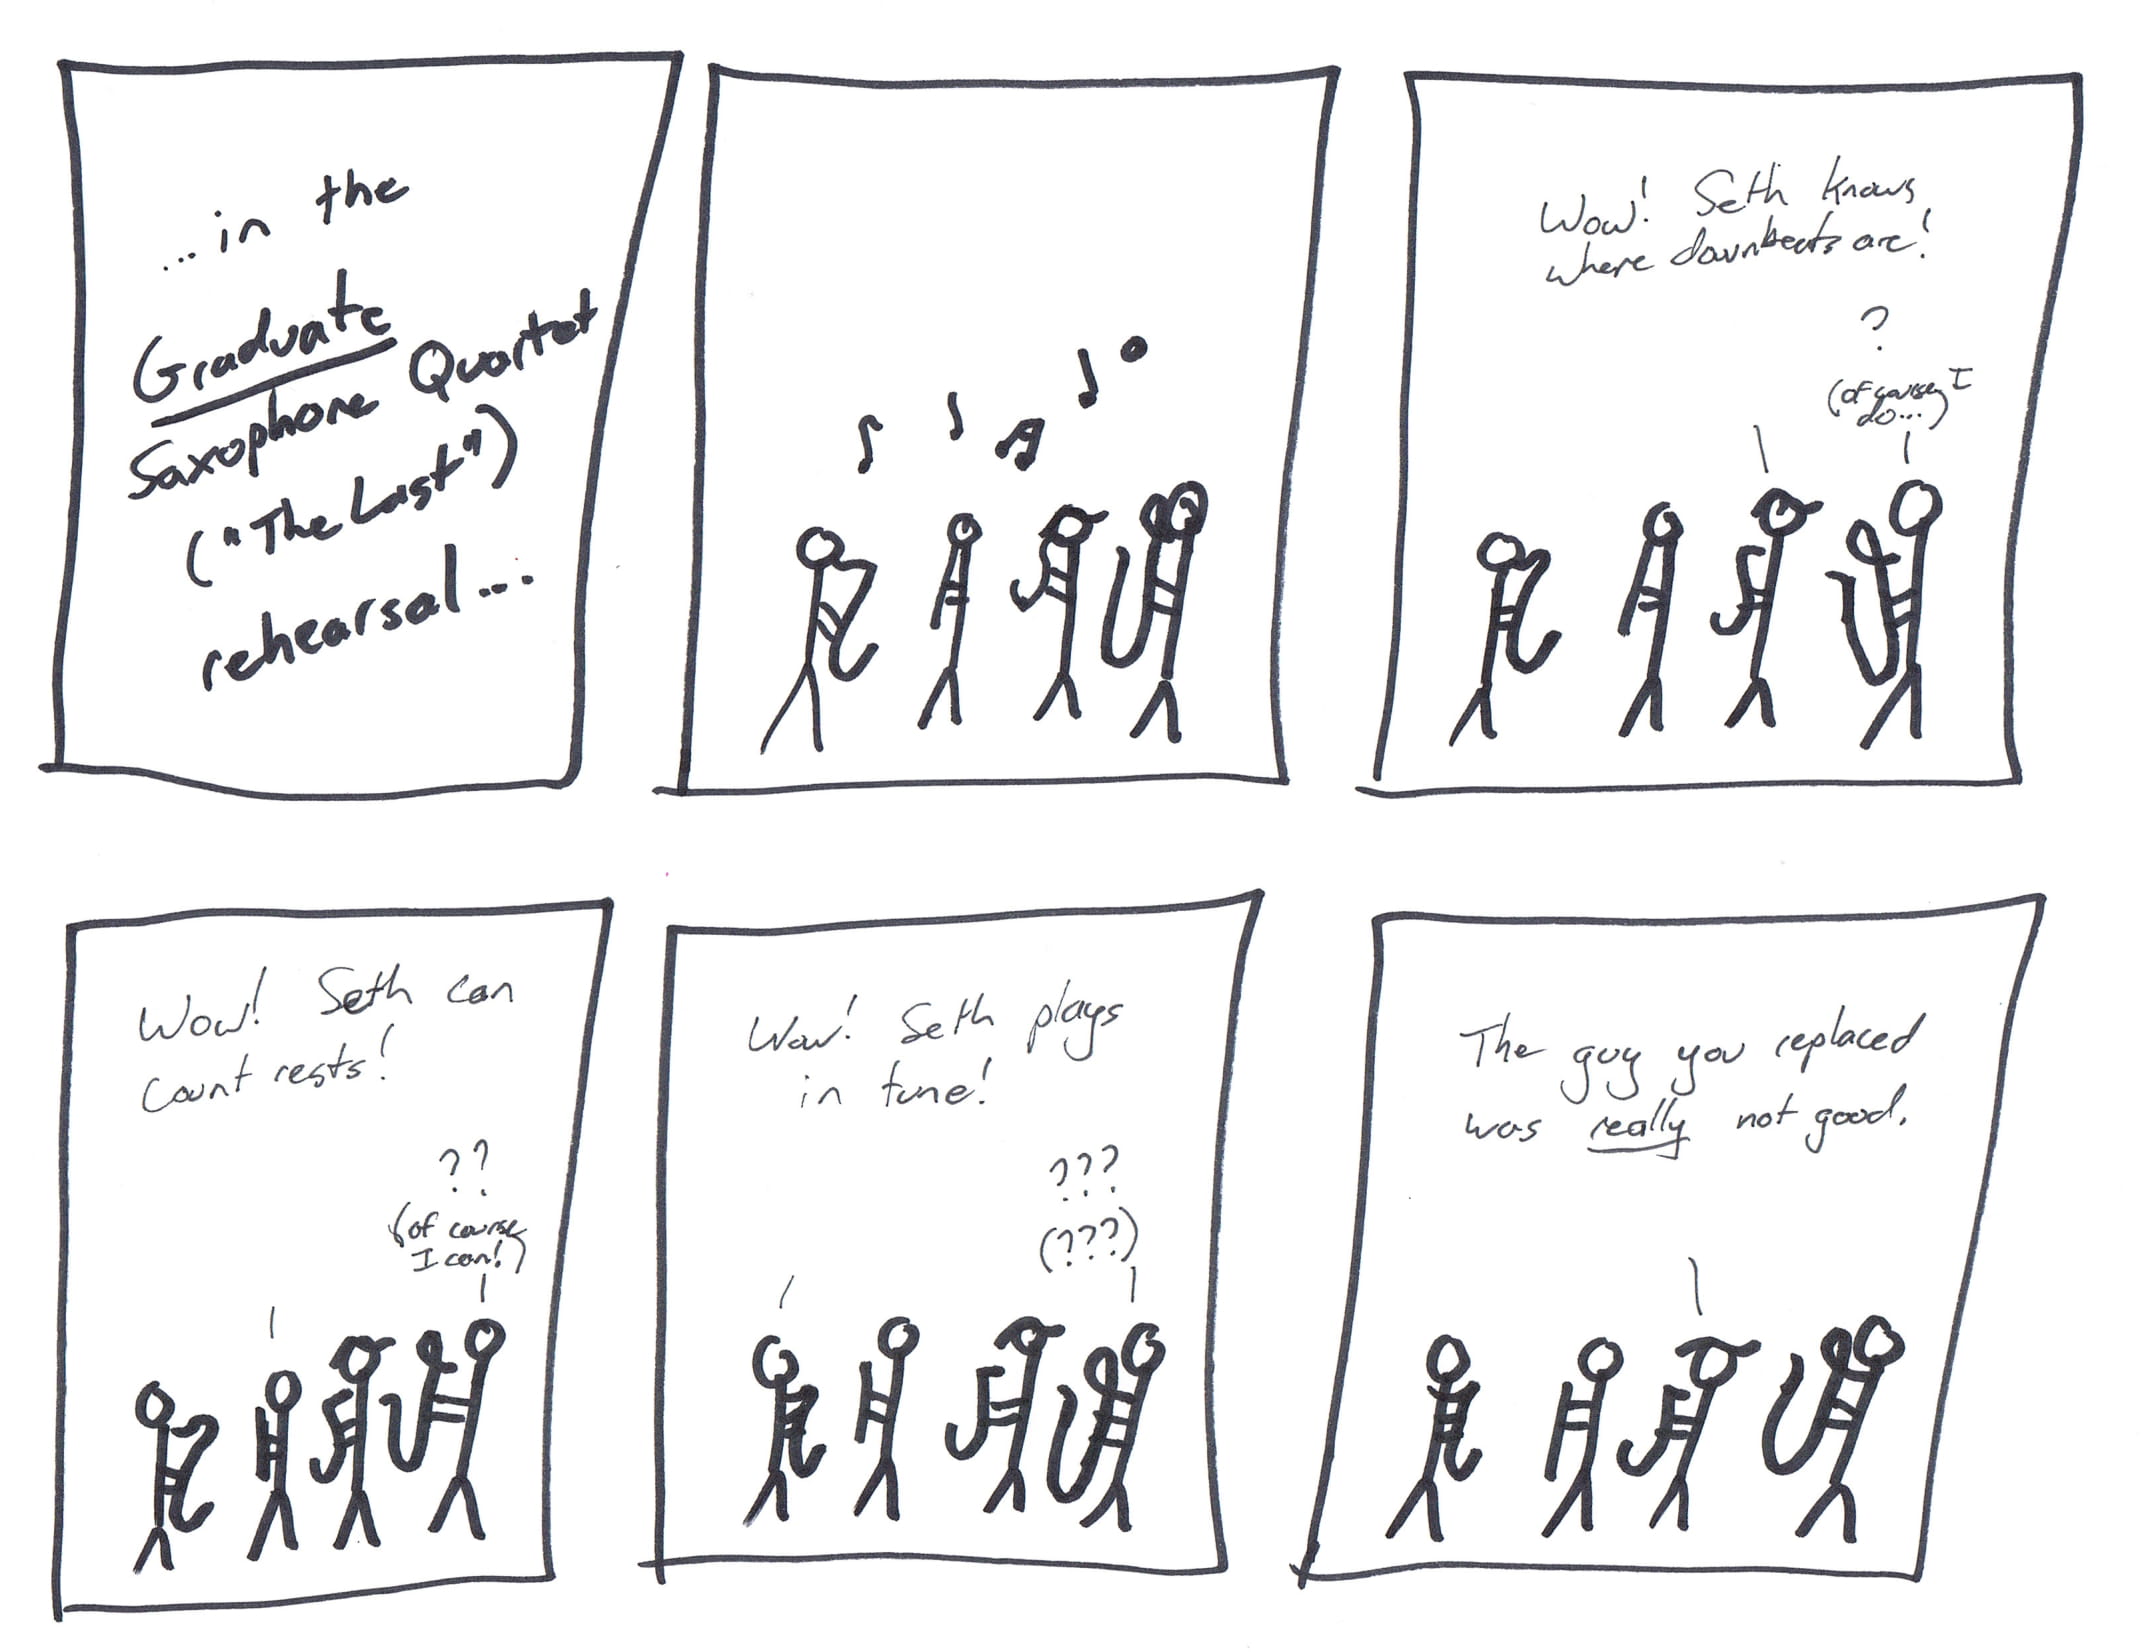 ...in the
Graduate
Saxophone Quartet
("The Last")
rehearsal...
Wow! Seth knows
where downbeats are!
?
(of course I
do...)
Wow! Seth can
count rests!
??
(of course
I can!)
Wow! Seth plays
in tune!
???
(???)
The guy you replaced
was really not good.